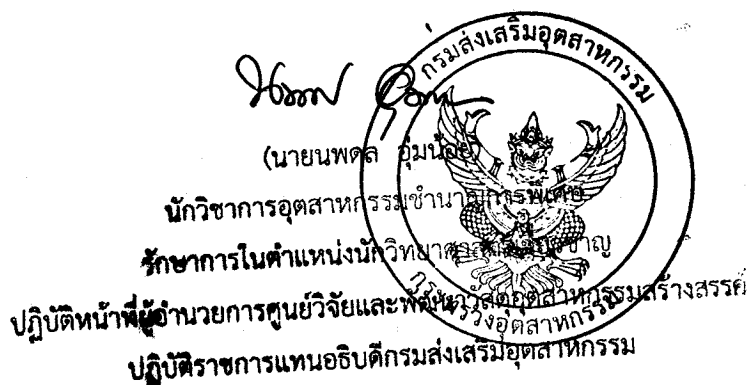 กรมส่งเสริมอุตสาหกรรม
(นายนพดล อุ่มน้อย)
นักวิชาการอุตสาหกรรมชำนาญการพิเศษ
รักษาการในตำแหน่งนักวิทยาศาสตร์เชี่ยวชาญ
ปฏิบัติหน้าที่ผู้อำนวยการศูนย์วิจัยและพัฒนาวัสดุอุตสาหกรรมสร้างสรรค์
ปฏิบัติราชการแทนอธิบดีกรมส่งเสริมอุตสาหกรรม
กระทรวงอุตสาหกรรม